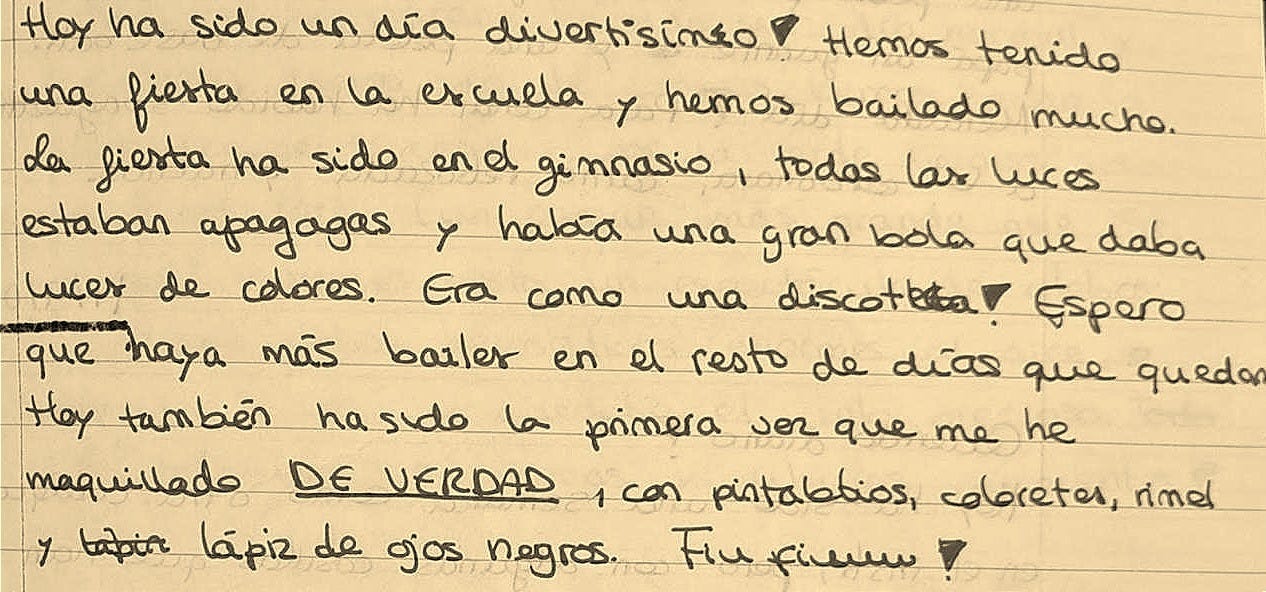 Hoy ha sido un día divertisimo! Hemos tenido
una fiesta en la escuela y hemos bailado mucho.
La fiesta ha sido en el gimnasio, todas las luces
estaban apagagas y había una gran bola que daba
luces de colores. Era como una discoteta! Espero
que haya más bailes en el resto de días que quedan
Hoy también ha sido la primera vez que me he
maquillado DE VERDAD, con pintalabios, coloretes, rimel
y lápiz de ojos negros. Fiu fiuuu!